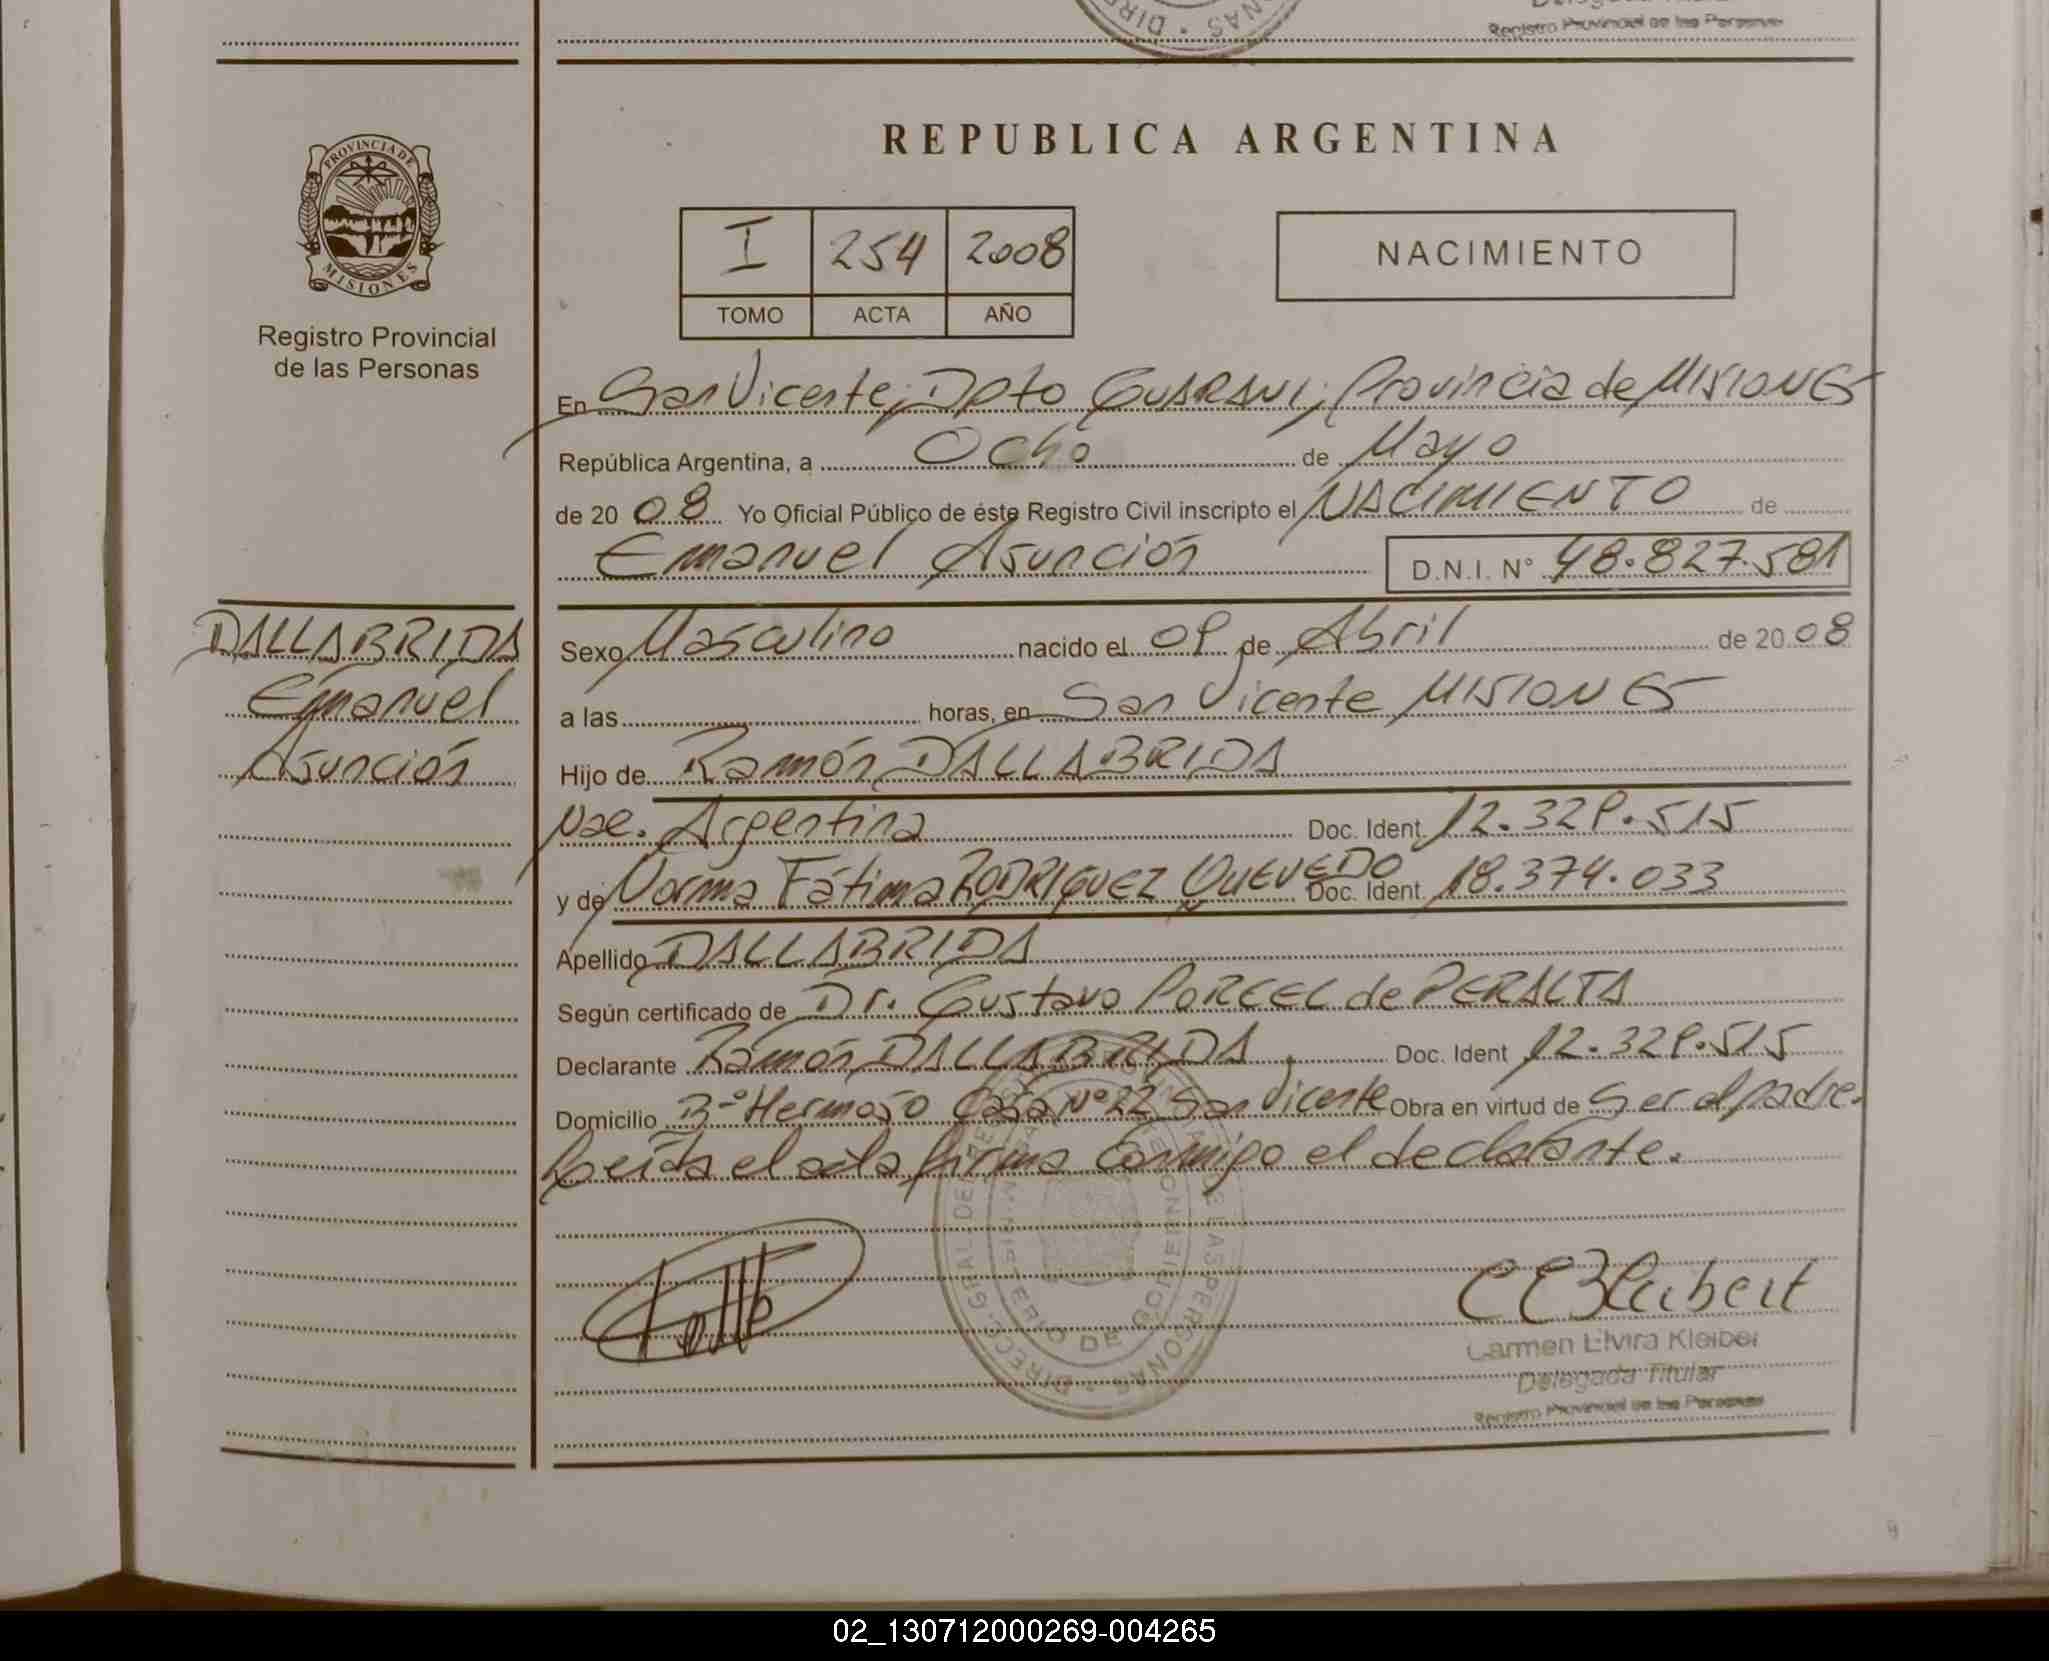 Registro Provincial de las Personas
REPUBLICA ARGENTINA
PROVINCIA DE
MISIONES
Registro Provincial
de las Personas
I 254 2008
TOMO ACTA AÑO
NACIMIENTO
En San Vicente; Dpto GUARANI; Provincia de MISIONES
República Argentina, a Ocho de Mayo
de 20 08 Yo Oficial Público de éste Registro Civil inscripto el NACIMIENTO de
Emanuel Asunción D.N.I. N° 48.827.581
DALLABRIDA
Emanuel
Asunción
Sexo Masculino nacido el 09 de Abril de 20 08
a las horas, en San Vicente MISIONES
Hijo de Ramón DALLABRIDA
Nac. Argentina Doc. Ident. 12.329.515
y de Norma Fátima RODRIGUEZ QUEVEDO Doc. Ident. 18.374.033
Apellido DALLABRIDA
Según certificado de Dr. Gustavo PORCEL de PERALTA
Declarante Ramón DALLABRIDA Doc. Ident 12.329.515
Domicilio B-º Hermoso Casa Nº 22 San Vicente Obra en virtud de Ser el padre.
Leída el acta firma conmigo el declarante.
Carmen Elvira Kleiber
Delegada Titular
Registro Provincial de las Personas
02_130712000269-004265